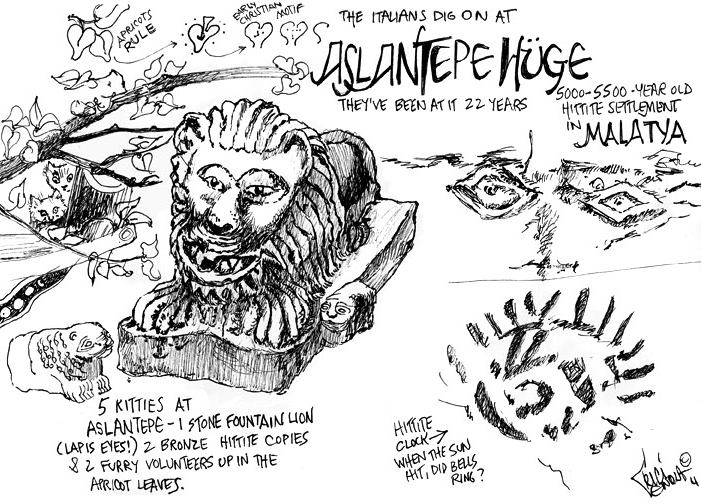 APRICOTS
RULE
EARLY
CHRISTIAN
MOTIF
THE ITALIANS DIG ON AT
ASLANTEPE HÜGE
THEY'VE BEEN AT IT 22 YEARS
5000-5500-YEAR OLD
HITTITE SETTLEMENT
IN MALATYA
5 KITTIES AT
ASLANTEPE - 1 STONE FOUNTAIN LION
(LAPIS EYES!) 2 BRONZE HITTITE COPIES
& 2 FURRY VOLUNTEERS UP IN THE
APRICOT LEAVES.
HITTITE
CLOCK→
WHEN THE SUN
HIT, DID BELLS
RING?
©